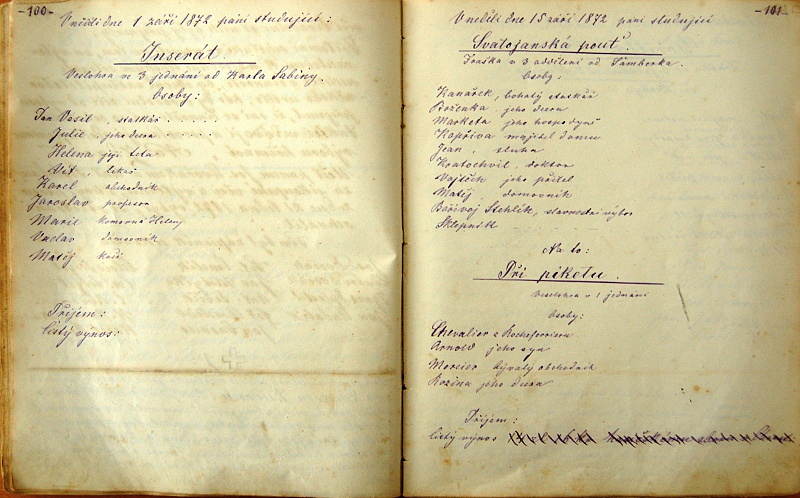 -100-
V neděli dne 1 září 1872 páni studující:
Inserát.
Veselohra ve 3 jednání od Karla Sabiny.
Osoby:
Jan Vesil, statkář . . . . . .
Julie, jeho dcera . . . . . .
Helena její teta
Vít, lékař
Karel obchodník
Jaroslav profesor
Marie komorná Heleny
Václav domovník
Matěj kočí
Příjem:
čistý výnos:
-101-
V neděli dne 15 září 1872 páni studující
Svatojanská pouť.
Fraška v 3 odděleni od Šamberka.
Osoby:
Kanárek, bohatý statkář
Boženka, jeho dcera
Marketa jeho hospodyně
Kopřiva majitel domu
Jean, sluha
Kratochvil, doktor
Vojtěch jeho přítel
Matěj domovník
Bořivoj Stehlík, slavnostní výbor
Sklepník
Na to:
Při piketu.
Veselohra v 1 jednání
Osoby:
Chevalier z Rocheferrieru
Arnold jeho syn
Mercier bývalý obchodník
Rozina jeho dcera
Příjem:
čistý výnos